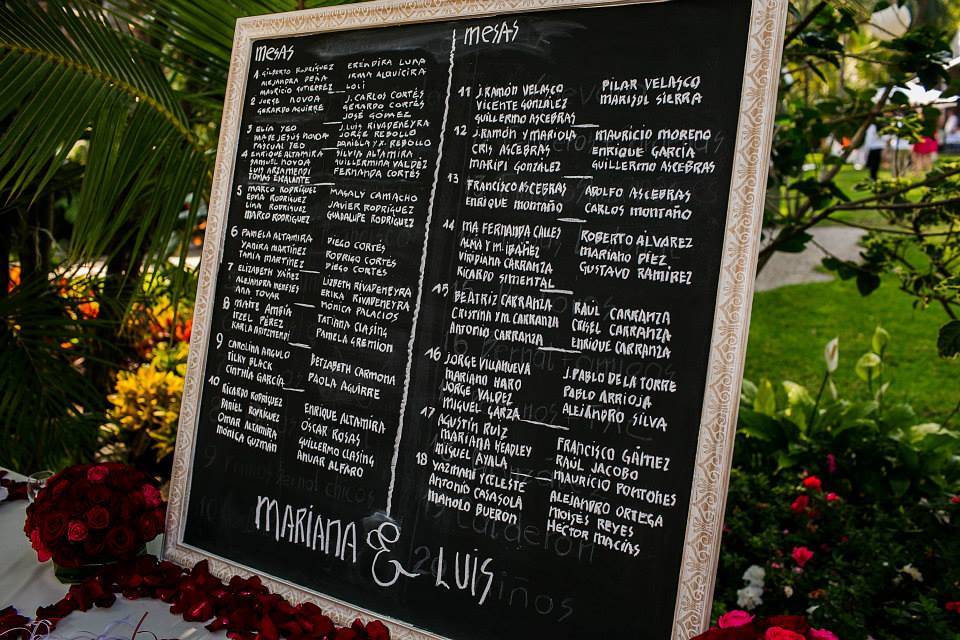 MESAS
1 GILBERTO RODRÍGUEZ ERÉNDIRA LUNA
ALEJANDRA PEÑA IRMA ALQUICIRA
MAURICIO GUTIÉRREZ LOLI
2 JORGE NOVOA J. CARLOS CORTÉS
GERARDO AGUIRRE GERARDO CORTÉS
JOSÉ GOMEZ
3 ELÍA YEO J. LUIS RIVADENEYRA
MA DE JESÚS NOVOA JORGE REBOLLO
PASCUAL YEO DANIELA Y X. REBOLLO
4 ENRIQUE ALTAMIRA SILVIA ALTAMIRA
SAMUEL NOVOA GUILLERMINA VALDÉZ
LUIS ARIZMENDI FERNANDA CORTÉS
TOMÁS ESCALANTE
5 MARCO RODRÍGUEZ MAGALY CAMACHO
EDNA RODRÍGUEZ JAVIER RODRÍGUEZ
LINA RODRÍGUEZ GUADALUPE RODRÍGUEZ
MARCO RODRÍGUEZ
6 PAMELA ALTAMIRA DIEGO CORTÉS
YANIRA MARTÍNEZ RODRIGO CORTÉS
TANIA MARTÍNEZ DIEGO CORTÉS
7 ELIZABETH YAÑEZ LIZBETH RIVADENEYRA
ALEJANDRA MENESES ERIKA RIVADENEYRA
ANA TOVAR MÓNICA PALACIOS
8 MAITE AMBÍA TATIANA CLASING
ITZEL PÉREZ PAMELA GREMION
KARLA ARIZMENDI
9 CAROLINA ANGULO BETZABETH CARMONA
TILKY BLACK PAOLA AGUIRRE
CINTHIA GARCÍA
10 RICARDO RODRÍGUEZ ENRIQUE ALTAMIRA
DANIEL RODRÍGUEZ OSCAR ROSAS
OMAR ALTAMIRA GUILLERMO CLASING
MÓNICA GUZMÁN ANUAR ALFARO
MESAS
11 J. RAMÓN VELASCO PILAR VELASCO
VICENTE GONZÁLEZ MARISOL SIERRA
GUILLERMO ASCEBRAS
12 J. RAMÓN Y MARIOLA MAURICIO MORENO
CRIS ASCEBRAS ENRIQUE GARCÍA
MARIPI GONZÁLEZ GUILLERMO ASCEBRAS
13 FRANCISCO ASCEBRAS ADOLFO ASCEBRAS
ENRIQUE MONTAÑO CARLOS MONTAÑO
14 MA FERNANDA CALLES ROBERTO ÁLVAREZ
ALMA Y M. IBÁÑEZ MARIANO DIEZ
VIRIDIANA CARRANZA GUSTAVO RAMÍREZ
RICARDO SIMENTAL
15 BEATRÍZ CARRANZA RAÚL CARRANZA
CRISTINA Y M. CARRANZA CRISEL CARRANZA
ANTONIO CARRANZA ENRIQUE CARRANZA
16 JORGE VILLANUEVA J. PABLO DE LA TORRE
MARIANO HARO PABLO ARRIOJA
JORGE VALDEZ ALEJANDRO SILVA
MIGUEL GARZA
17 AGUSTÍN RUIZ FRANCISCO GÁMEZ
MARIANA HEADLEY RAÚL JACOBO
MIGUEL AYALA MAURICIO PONTONES
18 YAZMANI Y CELESTE ALEJANDRO ORTEGA
ANTONIO CASASOLA MOISÉS REYES
MANOLO BUERON HÉCTOR MACÍAS
MARIANA & LUIS